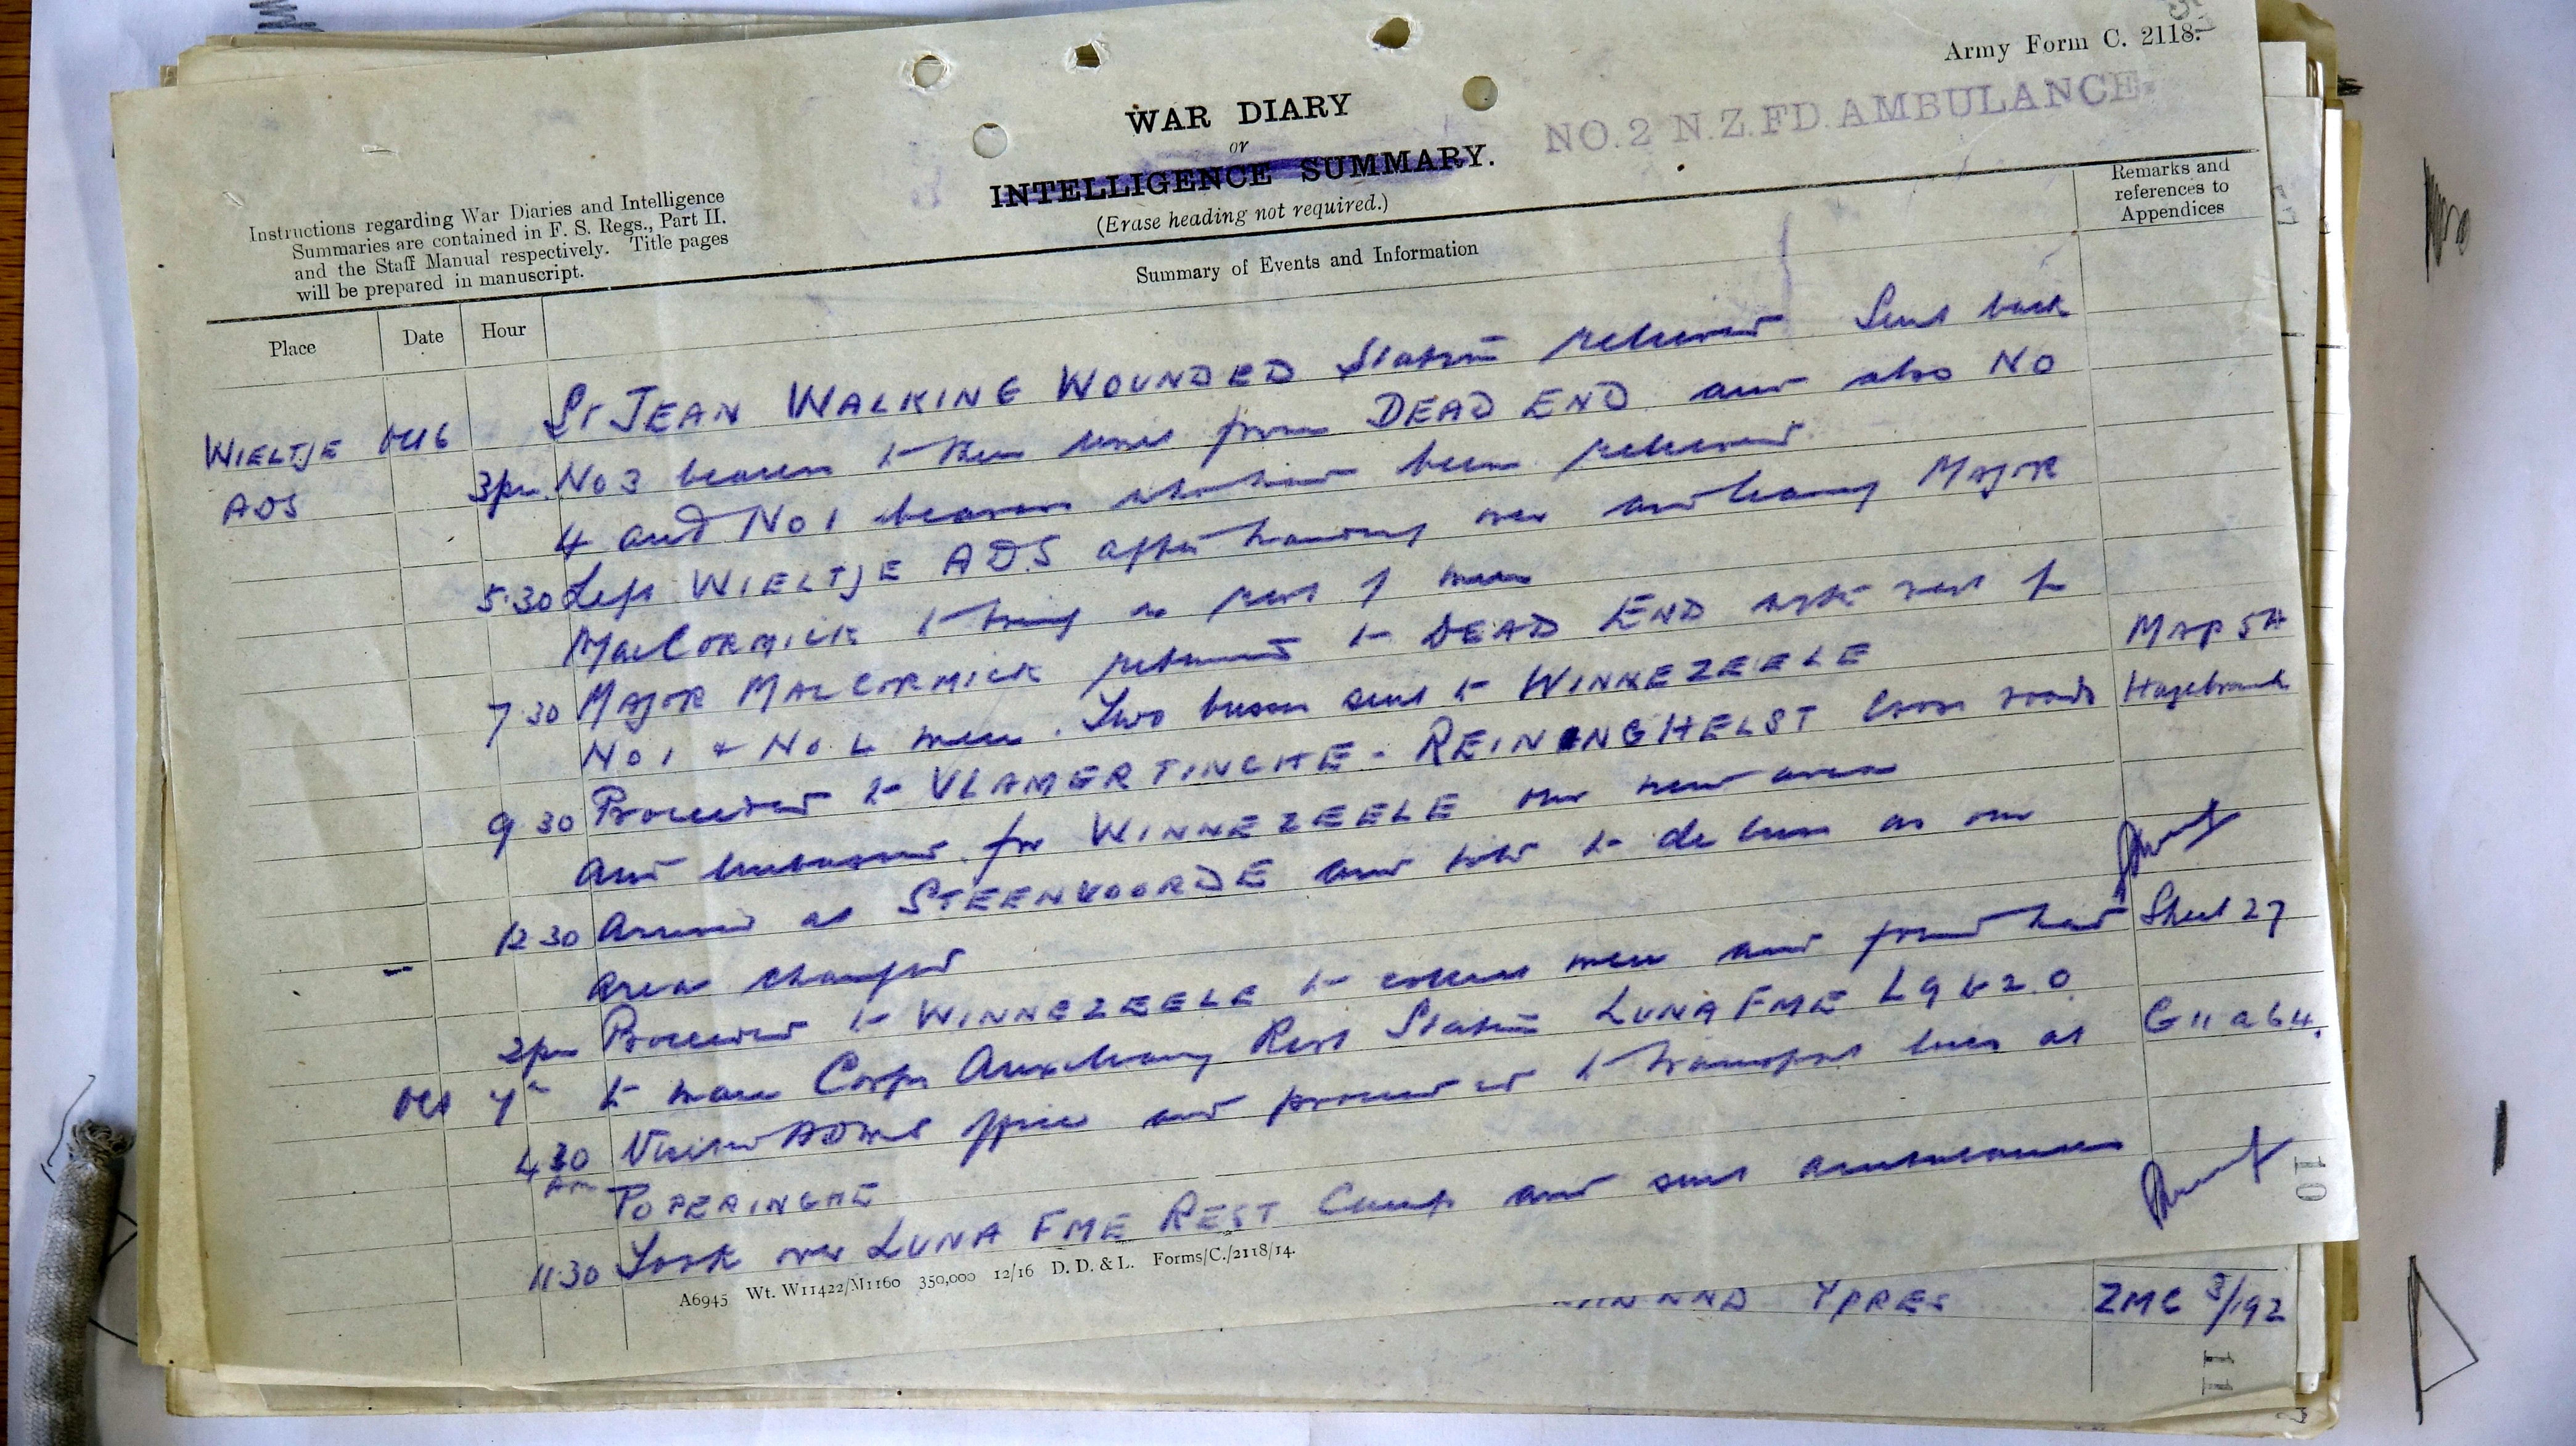 Army Form C. 2118.
NO. 2 N.Z. FD. AMBULANCE.
WAR DIARY
or
INTELLIGENCE SUMMARY.
(Erase heading not required.)
Instructions regarding War Diaries and Intelligence
Summaries are contained in F. S. Regs., Part II.
and the Staff Manual respectively. Title pages
will be prepared in manuscript.
Summary of Events and Information
Remarks and
references to
Appendices
Place Date Hour
WIELTJE Oct 6 St JEAN WALKING WOUNDED Station relieved Sent back
ADS 3pm No 3 bearers to their lines from DEAD END and also No
4 and No 1 bearers who have been relieved
5.30 Left WIELTJE ADS after handing over and leaving Major
MacCORMICK to bring in rest of men
7 30 MAJOR MACCORMICK returned to DEAD END with rest of
No 1 + No 4 men. Two busses sent to WINNEZEELE MAP 5A
9 30 Proceeded to VLAMERTINGHE - REININGHELST Cross roads Hazebrouck
and embussed for WINNEZEELE our new area
12 30 Arrived at STEENVOORDE and told to de buss as our
area changed
2pm Proceeded to WINNEZEELE to collect men and found had Sheet 27
Oct 7th to man Corps Auxiliary Rest Station LUNA FME L9 b 2.0
4 30 Visited ADMS office and proceeded to transport lines at G 11 a 6 4.
AM POPERINGHE
11.30 Took over LUNA FME REST Camp and sent ambulances
A6945 Wt. W11422/M1160 350,000 12/16 D. D. & L. Forms/C./2118/14.
10
YPRES ZMC 3/192
11